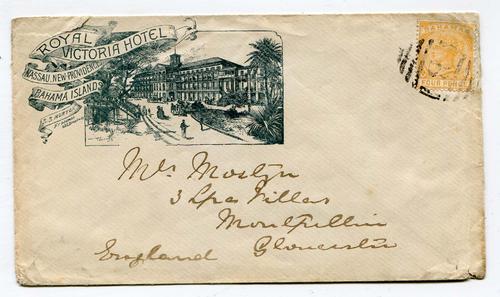 ROYAL
VICTORIA HOTEL
NASSAU, NEW PROVIDENCE
BAHAMA ISLANDS
BAHAMAS
FOUR PENCE
Mrs Mostyn
3 Spa Villas
Montpellier
England Gloucester